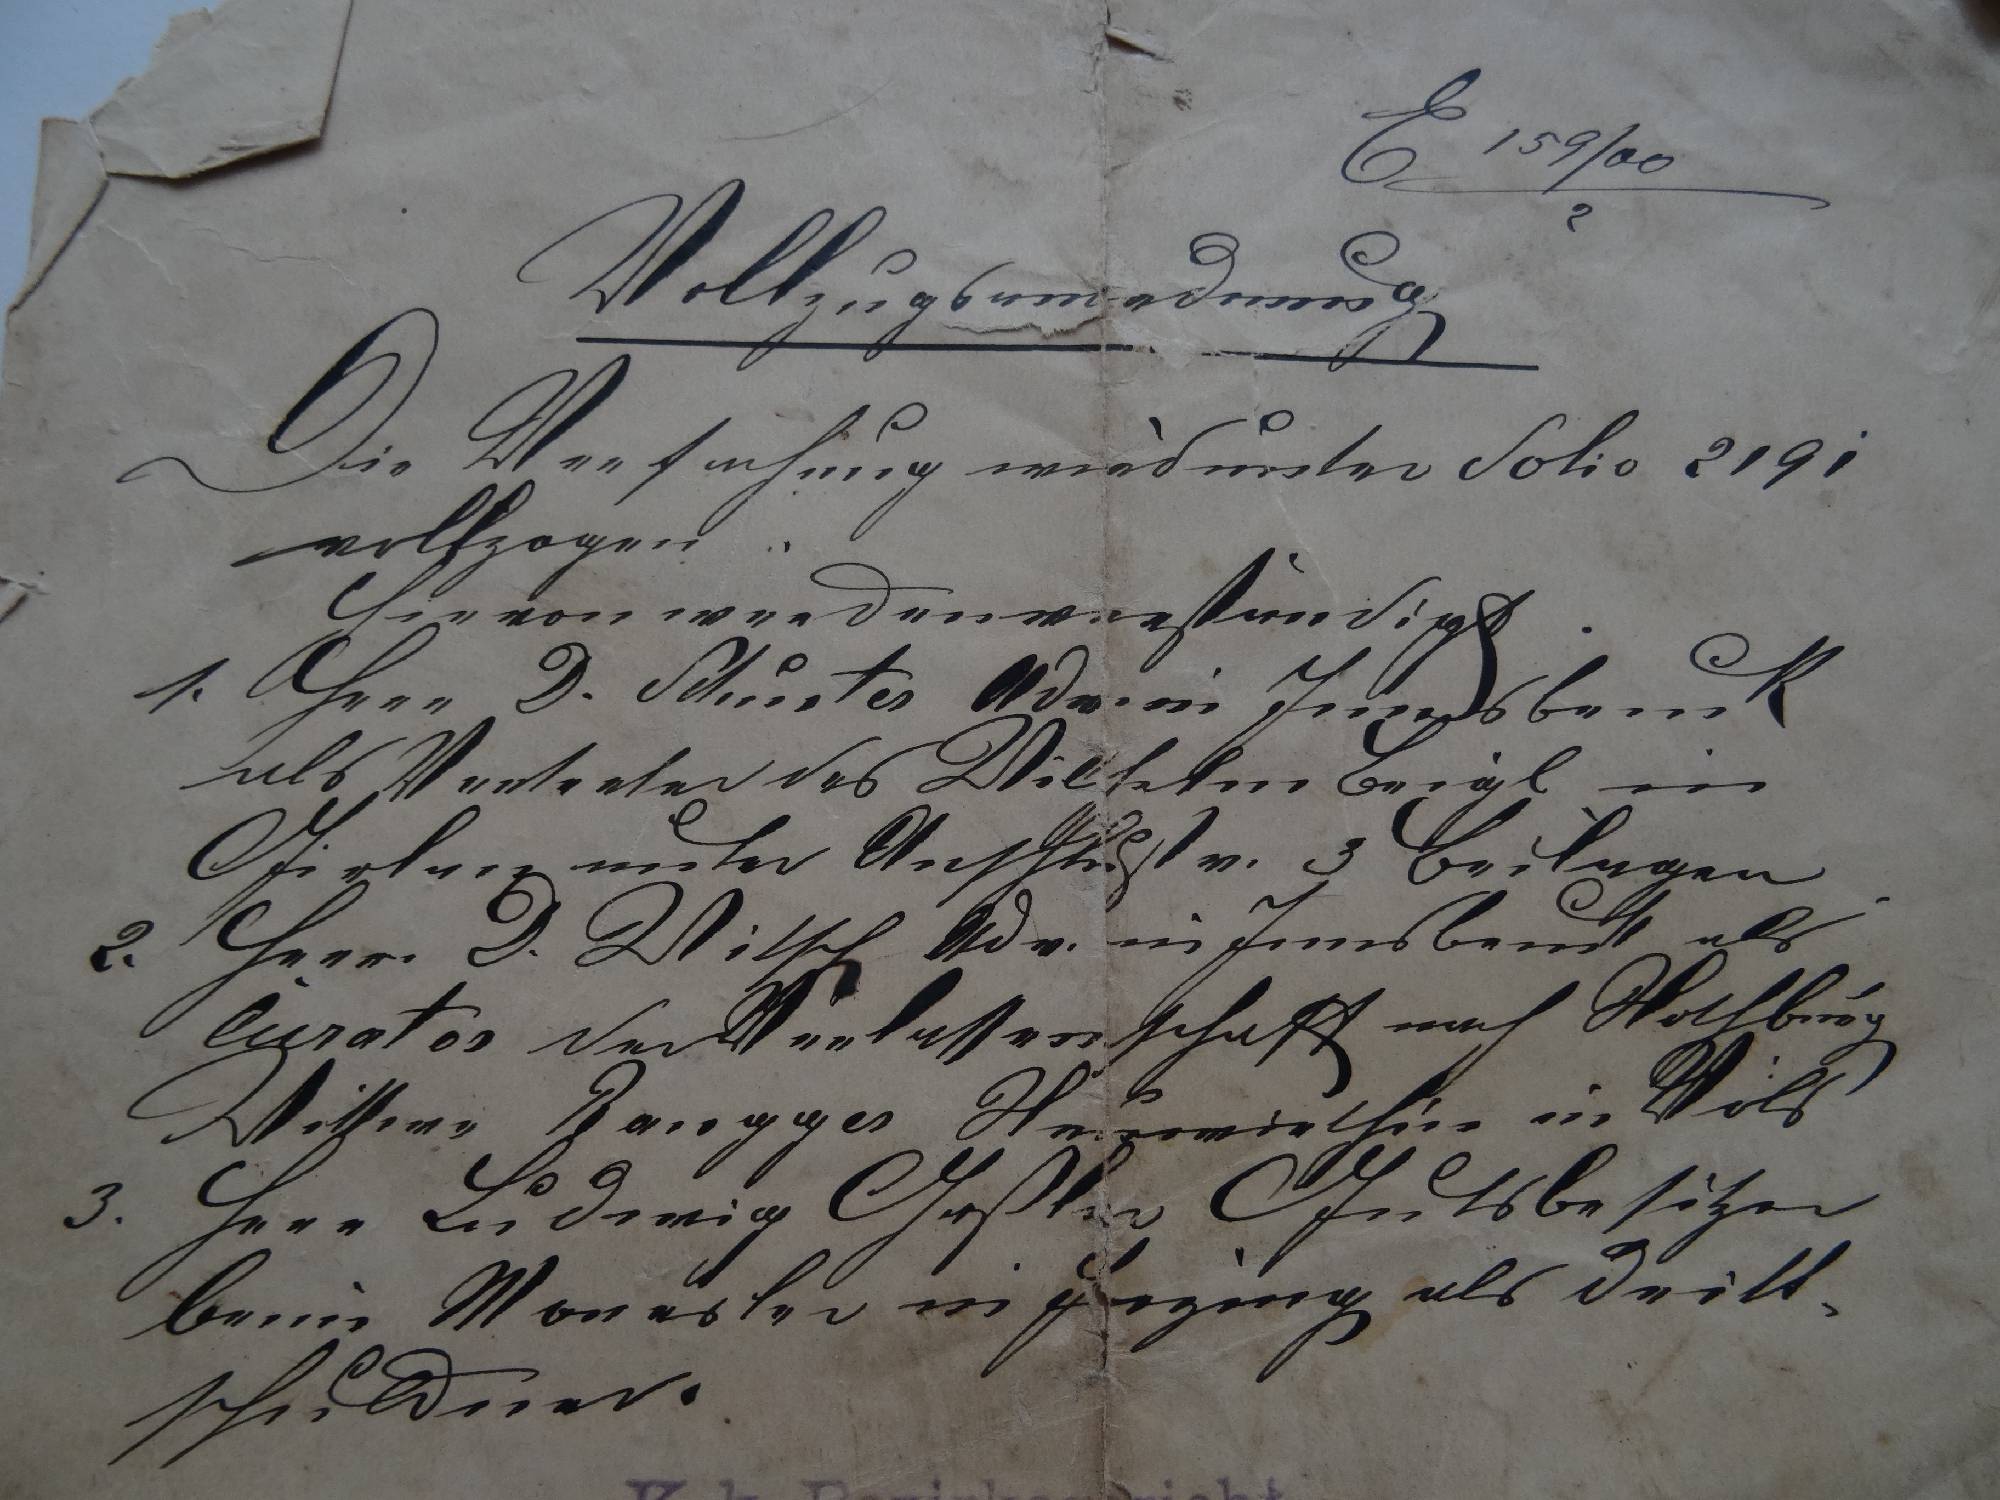 E 159/00
2
Vollzugsanordnung
Die Verfachung wird unter Folio 2191
vollzogen.
Hievon werden verständigt.
1. Herr D. Schuster Adv. in Innsbruck
als Vertreter des Wilhelm Beigl in
unter Anschluß v. 3 Beilagen
2. Herr D. Witsch Adv. in Innsbruck als
Curator der Verlassenschaft nach Nothburg
Wittwe Zangger Neuwirthin in Völs
3. Herr Ludwig Gaßler Gutsbesitzer
beim in als Dritt-
schuldner.
K. k. Bezirksgericht